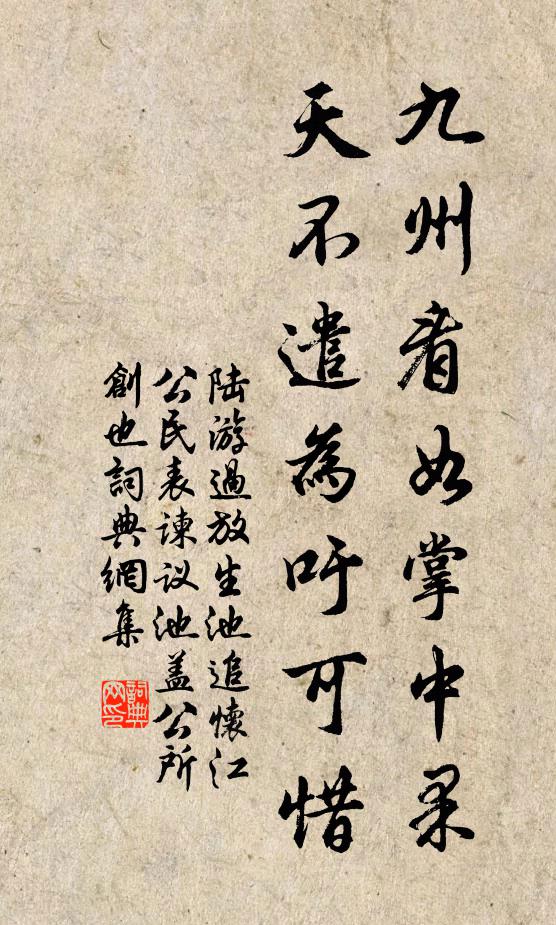 九州看如掌中果
天不遣為吁可惜
陆游過放生池追懷江
公民表諫议池盖公所
創也詞典網集
詞典
网印